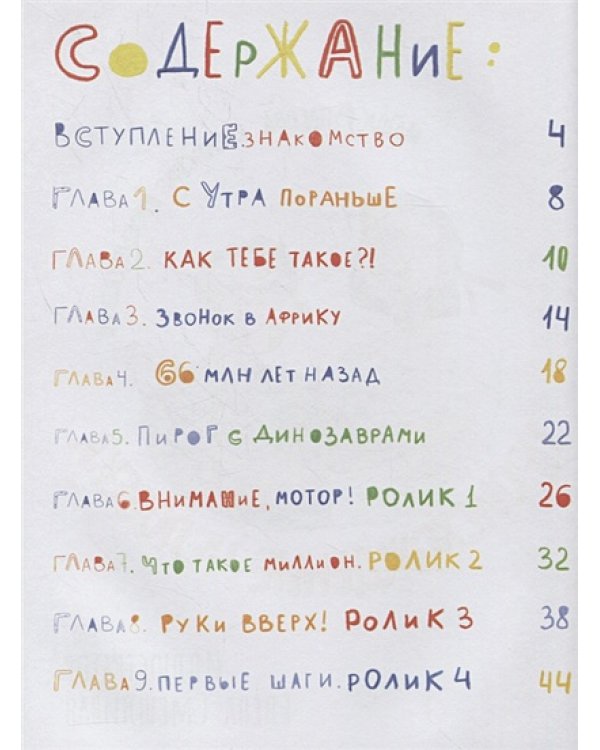 СОДЕРЖАНиЕ:
ВСТУПЛЕНИЕ. ЗНАКОМСТВО 4
ГЛАВА 1. С УТРА ПОРАНЬШЕ 8
ГЛАВА 2. КАК ТЕБЕ ТАКОЕ?! 10
ГЛАВА 3. ЗВОНОК В АФРИКУ 14
ГЛАВА 4. 66 МЛН ЛЕТ НАЗАД 18
ГЛАВА 5. ПИРОГ С ДИНОЗАВРАМИ 22
ГЛАВА 6. ВНИМАНИЕ, МОТОР! РОЛИК 1 26
ГЛАВА 7. ЧТО ТАКОЕ МИЛЛИОН. РОЛИК 2 32
ГЛАВА 8. РУКИ ВВЕРХ! РОЛИК 3 38
ГЛАВА 9. ПЕРВЫЕ ШАГИ. РОЛИК 4 44